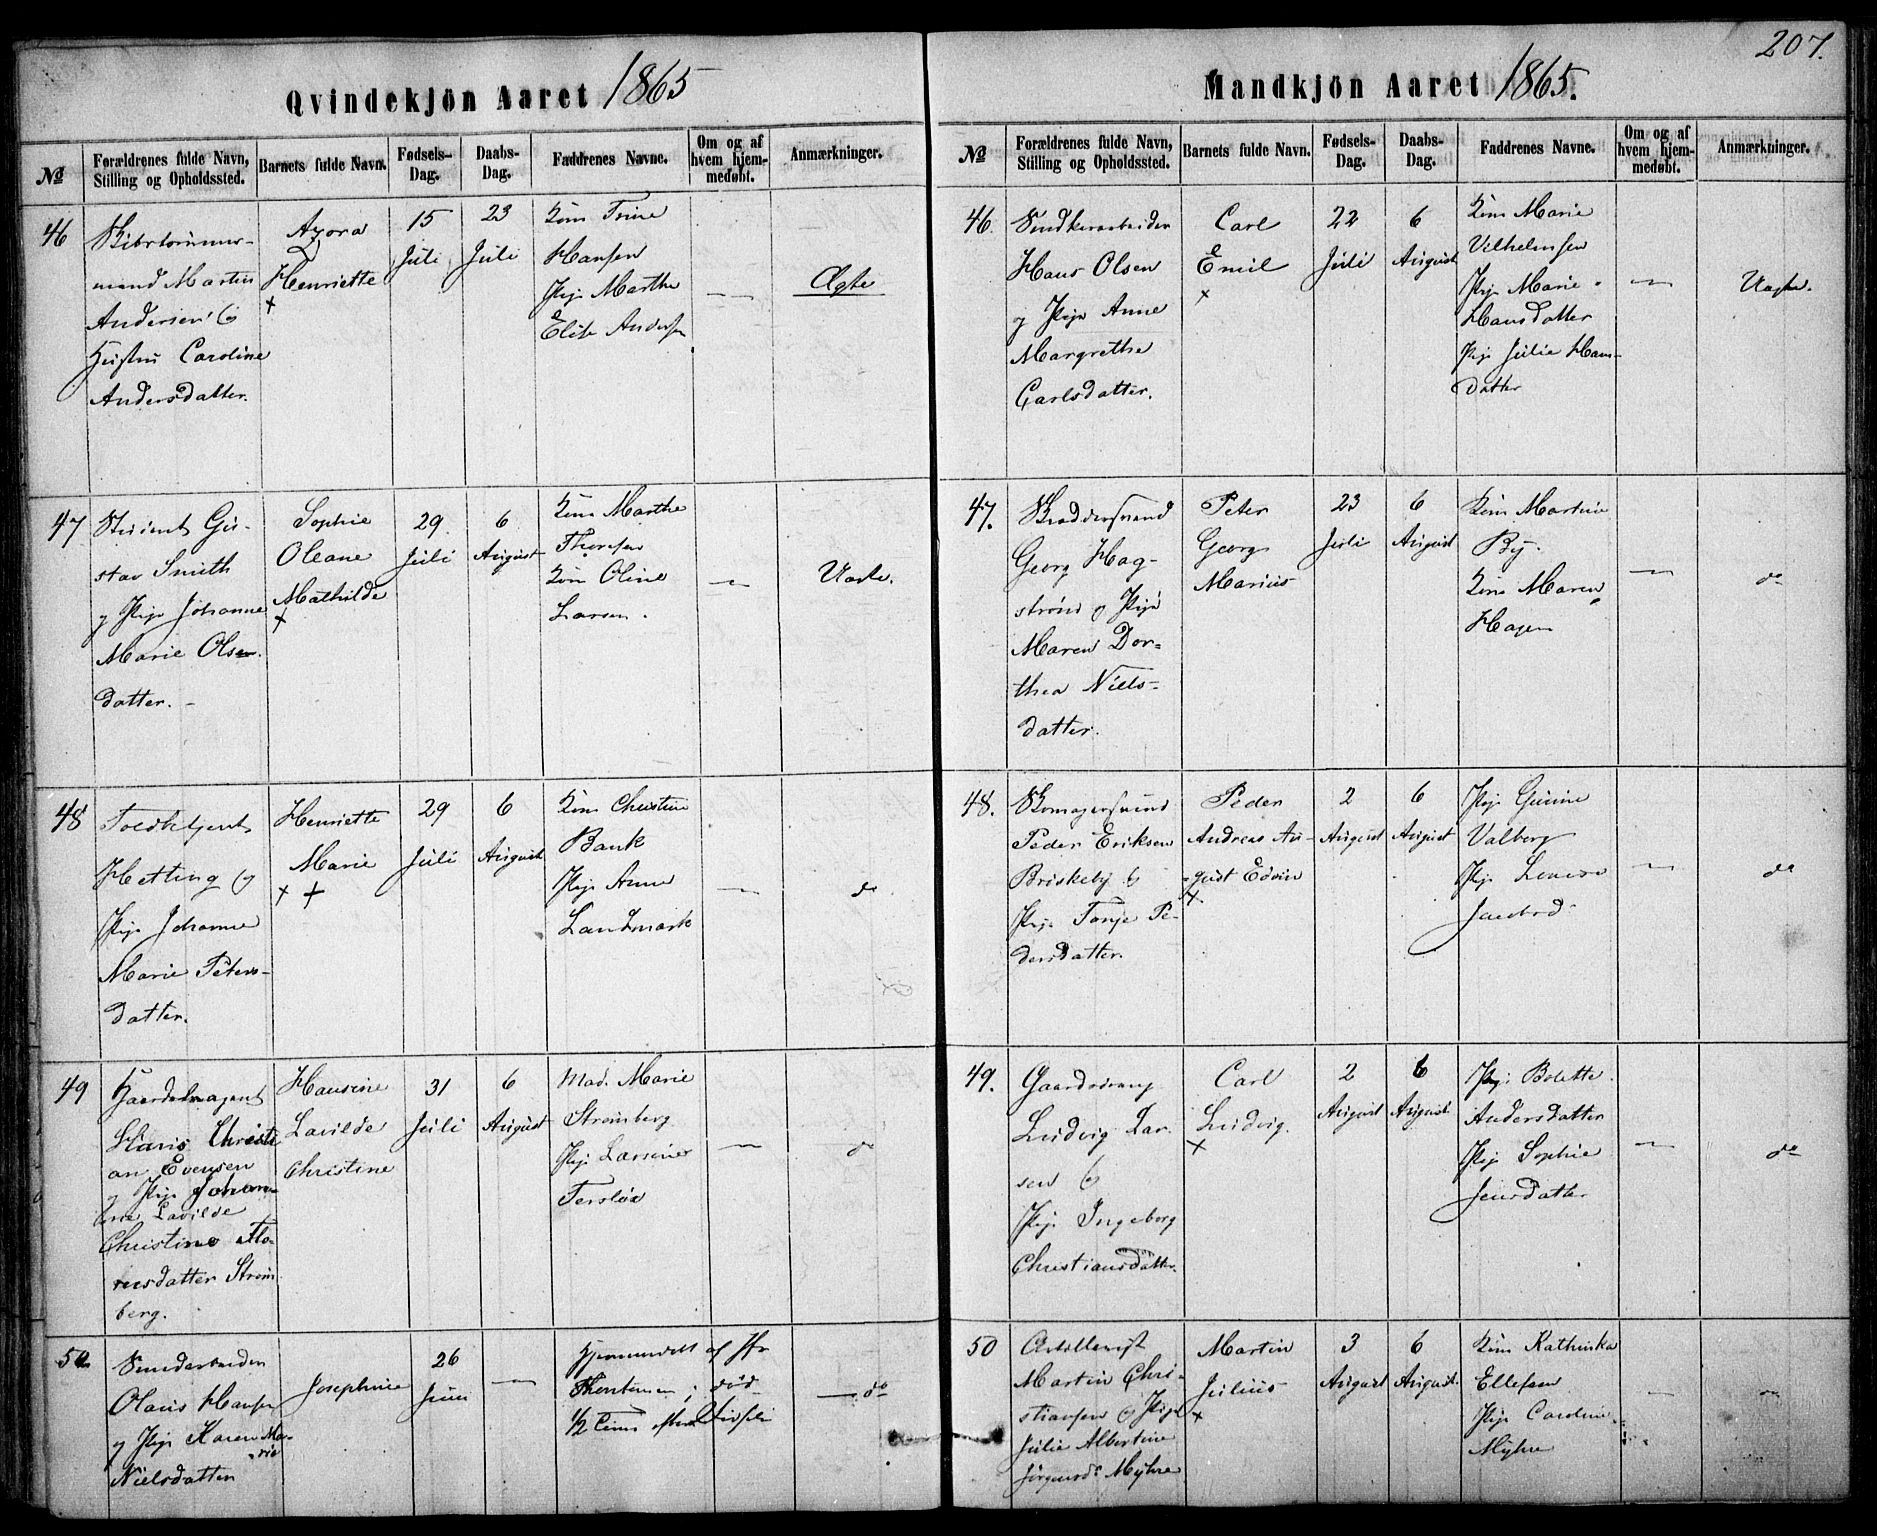 207.
Qvindekjön Aaret 1865
No
Forældrenes fulde Navn,
Stilling og Opholdssted.
Barnets fulde Navn.
Fødsels-
Dag.
Daabs-
Dag.
Faddrenes Navne.
Om og af
hvem hjem-
medøbt.
Anmærkninger.
46
mand Martin
Andersen og
Hustru Caroline
Andersdatter.
Azora
Henriette
+
15
Juli
23
Juli
Kone Trine
Hansen
Pige Marthe
Elise Andersen
—
Ægte
47
Student Gu-
stav Smith
og Pige Johanne
Marie Olsen-
datter. -
Sophie
Oleane
Mathilde
+
29
Juli
6
August
Kone Marthe
Thoresen
Kone Oline
Larsen.
—
Uægte.
48
Toldbetjent
Hetting og
Pige Johanne
Marie Peters-
datter.
Henriette
Marie
+ +
29
Juli
6
August
Kone Christine
Bank
Pige Anne
Landmark
—
do
49
Hans Christi
an Evensen
og Pige Johan-
ne Lavilde
Christine Tho-
resdatter Strøm
berg.
Hansine
Lavilde
Christine
31
Juli
6
August
Mad. Marie
Strømberg
Pige Larsine
—
do
50
Olaus Hansen
og Pige Karen Ma-
rie
Nielsdatter
Josephine
26
Juni
—
Hjemmedøbt af Jfr
Thorstensen; død
1/2 Time efter Fødselen
— do
Mandkjön Aaret 1865.
No
Forældrenes fulde Navn,
Stilling og Opholdssted.
Barnets fulde Navn.
Fødsels-
Dag.
Daabs-
Dag.
Faddrenes Navne.
Om og af
hvem hjem-
medøbt.
Anmærkninger.
46.
Hans Olsen
og Pige Anne
Margrethe
Carlsdatter.
Carl
Emil
+
22
Juli
6
August
Kone Marie
Vilhelmsen
Pige Marie
Hansdatter
Pige Julie Hans-
datter
—
Uægte.
47.
Skræddersvend
Georg Hag-
strøm og Pige
Maren Dor-
thea Niels-
datter.
Peter
Georg
Marius
23
Juli
6
August
Kone Martine
By.
Kone Maren
Hagen
—
do
48.
Skomagersvend
Peder Eriksen
Briskeby og
Pige Tonje Pe-
dersdatter.
Peder
Andreas Au-
gust Edvin
+
2
August
6
August
Pige Gunine
Valborg
Pige Lovise
—
do
49.
Gaardsdreng
Ludvig Lar-
sen og
Pige Ingeborg
Christiansdatter.
Carl
Ludvig.
+
2
August
6
August.
Pige Bolette
Andersdatter
Pige Sophie
Jensdatter
—
do
50
Artillerist
Martin Chri-
stiansen og Pige
Julie Albertine
Jørgensdr Myhre
Martin
Julius
+
3
August
6
August.
Kone Kathinka
Ellefsen
Pige Caroline
Myhre
—
do